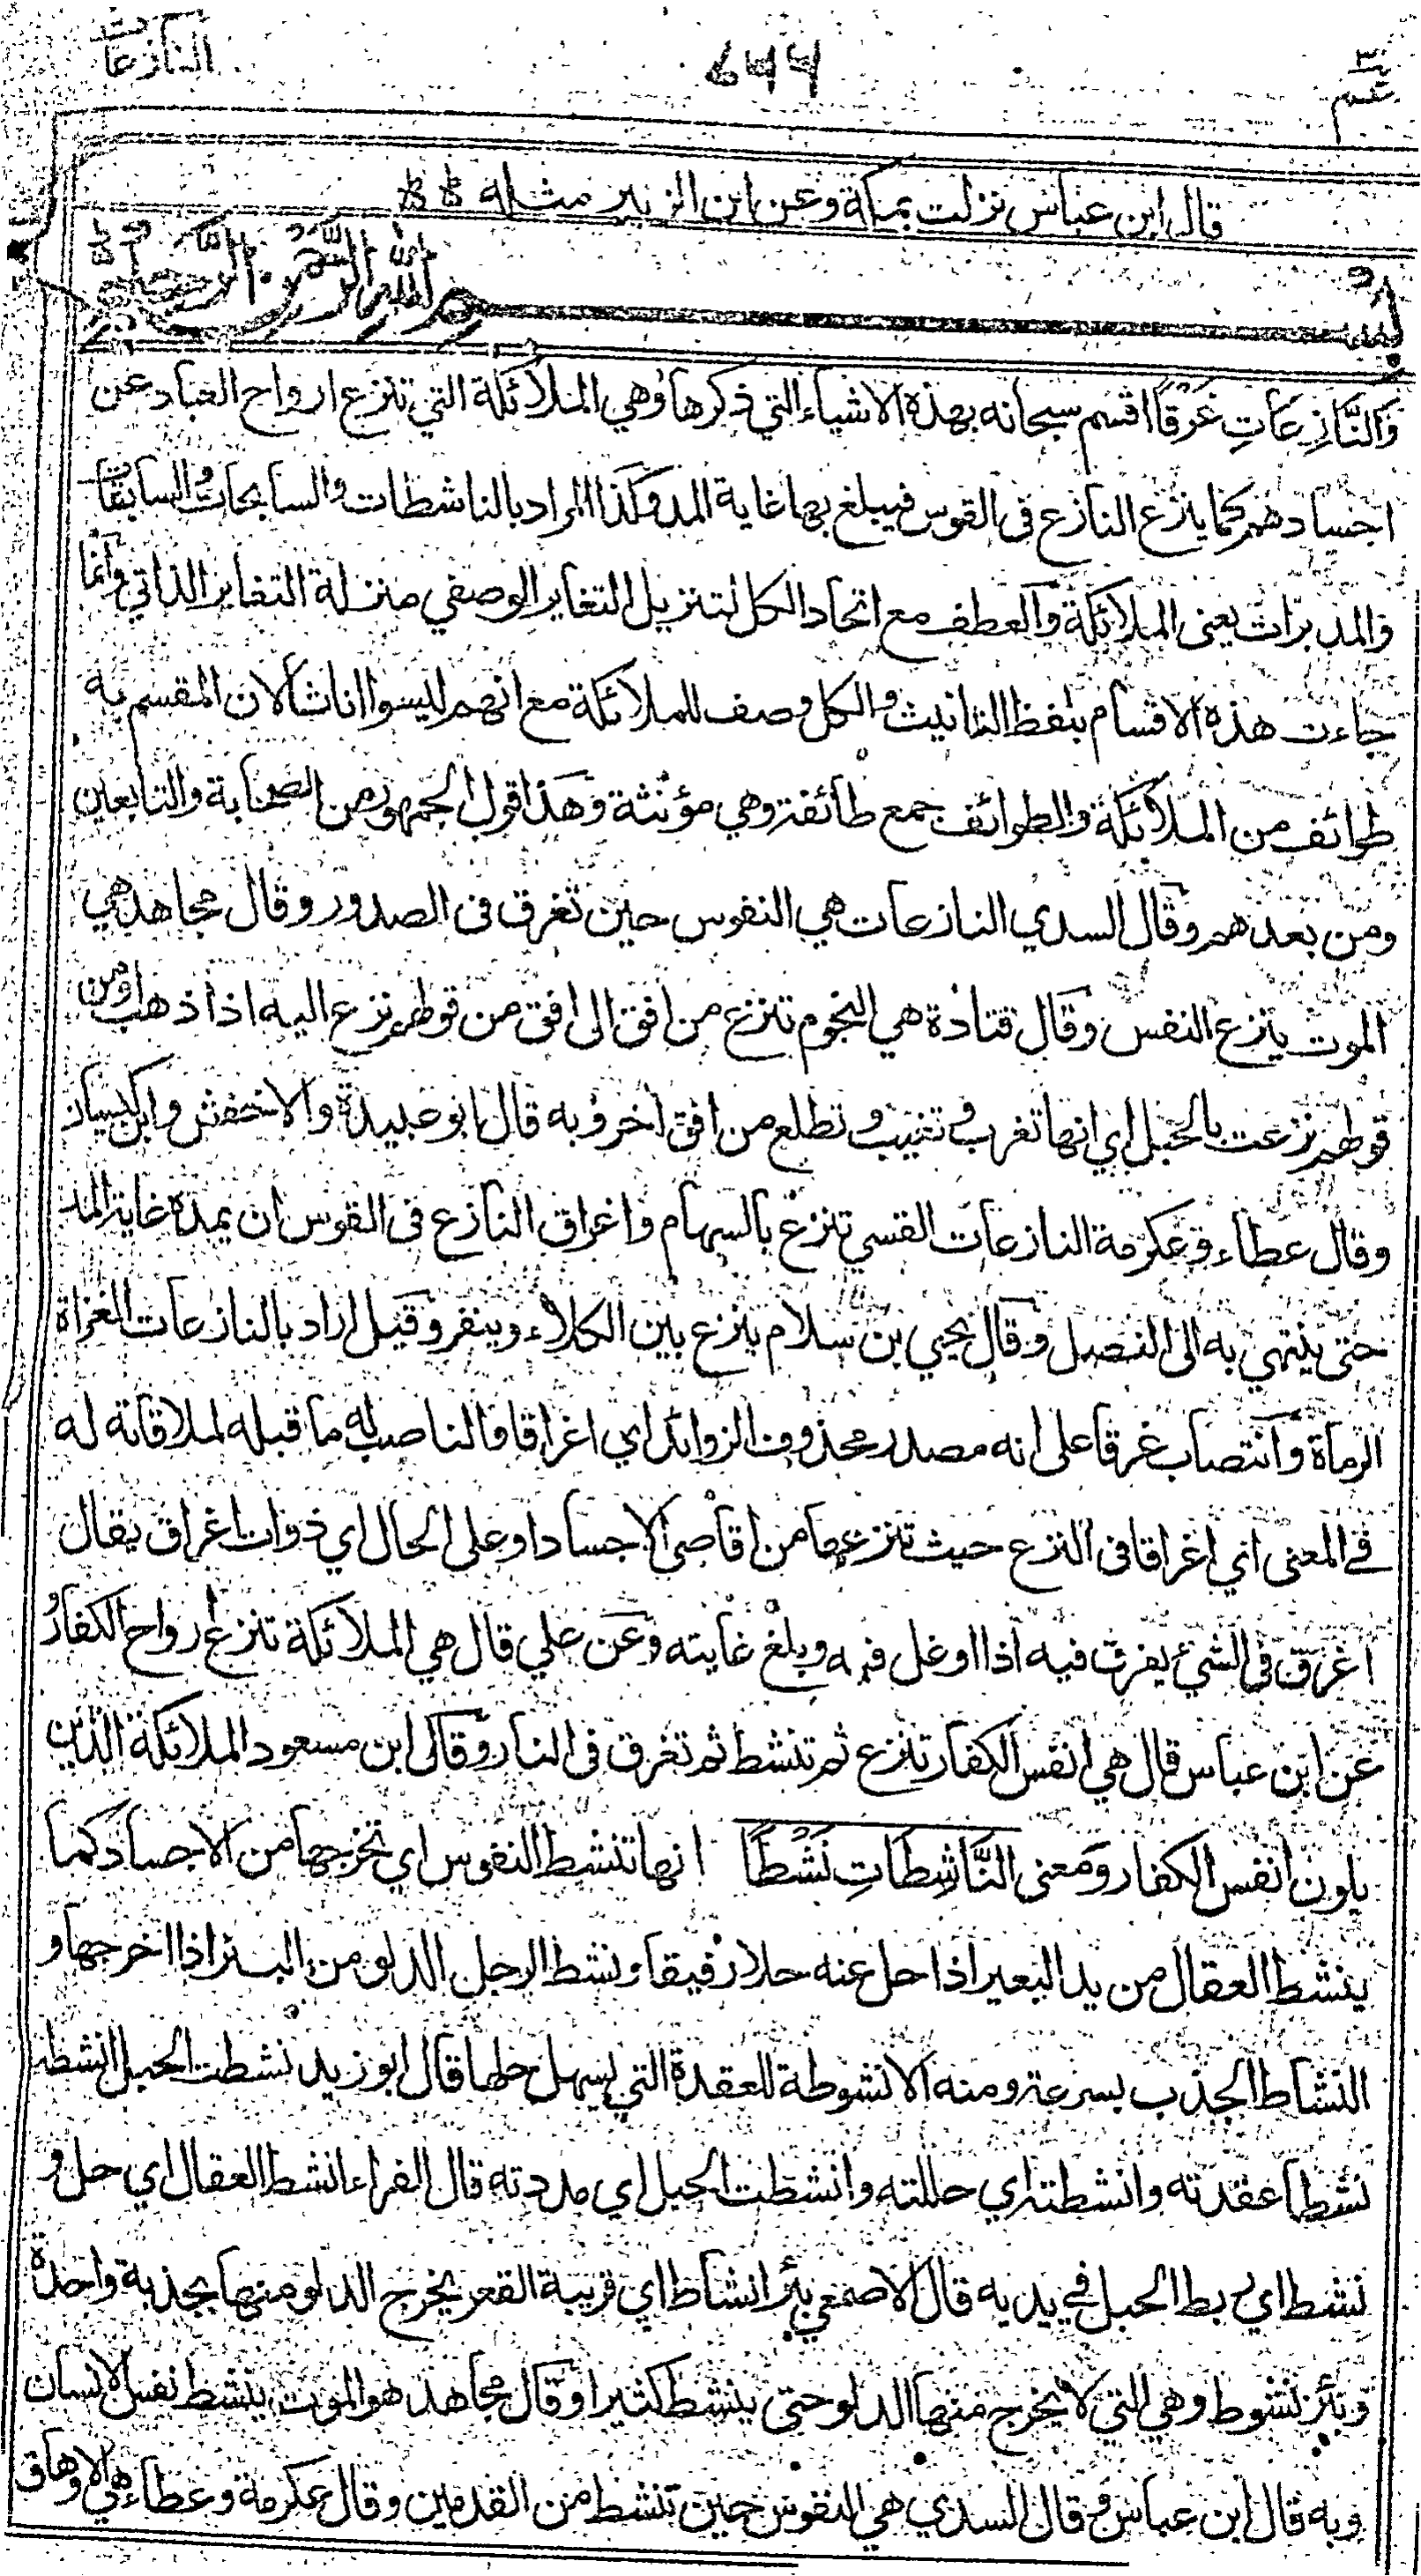 النازعات
عم
قال ابن عباس نزلت بمكة وعن ابن الزبير مثله
بسم الله الرحمن الرحيم
وَالنَّازِعَاتِ غَرْقًا اقسم سبحانه بهذه الاشياء التي ذكرها وهي الملائكة التي تنزع ارواح العباد عن
اجسادهم كما ينزع النازع فى القوس فيبلغ بها غاية المد وكذا المراد بالناشطات والسابحات والسابقات
والمدبرات يعنى الملائكة والعطف مع اتحاد الكل لتنزيل التغاير الوصفي منزلة التغاير الذاتي وانما
جاءت هذه الاقسام بلفظ التانيث والكل وصف للملائكة مع انهم ليسوا اناثا لان المقسم به
طوائف من الملائكة والطوائف جمع طائفة وهي مؤنثة وهذا قول الجمهور من الصحابة والتابعين
ومن بعدهم وقال السدي النازعات هي النفوس حين تغرق فى الصدور وقال مجاهد هي
الموت ينزع النفس وقال قتادة هي النجوم تنزع من افق الى افق من قولهم نزع اليه اذا ذهب او من
قولهم نزعت بالحبل اي انها تغرب وتغيب وتطلع من افق اخر وبه قال ابو عبيدة والاخفش وابن كيسان
وقال عطاء وعكرمة النازعات القسي تنزع بالسهام واغراق النازع فى القوس ان يمده غاية المد
حتى ينتهي به الى النصل وقال يحيي بن سلام ينزع بين الكلاء وينفر وقيل اراد بالنازعات الغزاة
الرماة وانتصاب غرقا على انه مصدر محذوف الزوائد اي اغراقا والناصب له ما قبله لملاقاته له
في المعنى اي اغراقا فى النزع حيث تنزعها من اقاصي الاجساد او على الحال اي ذوات اغراق يقال
اغرق فى الشيء يغرق فيه اذا اوغل فيه وبلغ غايته وعن علي قال هي الملائكة تنزع ارواح الكفار
عن ابن عباس قال هي انفس الكفار تنزع ثم تنشط ثم تغرق فى النار وقال ابن مسعود الملائكة الذين
يلون انفس الكفار ومعنى النَّاشِطَاتِ نَشْطًا انها تنشط النفوس اي تخرجها من الاجساد كما
ينشط العقال من يد البعير اذا حل عنه حلا رفيقا ونشط الرجل الدلو من البئر اذا اخرجها و
النشاط الجذب بسرعة ومنه الانشوطة للعقدة التي يسهل حلها قال ابو زيد نشطت الحبل انشطه
نشطا عقدته وانشطته اي حللته وانشطت الحبل اي مددته قال الفراء انشط العقال اي حل و
نشط اي ربط الحبل في يديه قال الاصمعي بئر انشاط اي قريبة القعر يخرج الدلو منها بجذبة واحدة
وبئر نشوط وهي التي لا يخرج منها الدلو حتى ينشط كثيرا وقال مجاهد هو الموت ينشط نفس الانسان
وبه قال ابن عباس وقال السدي هي النفوس حين تنشط من القدمين وقال عكرمة وعطاء هي الاوهاق